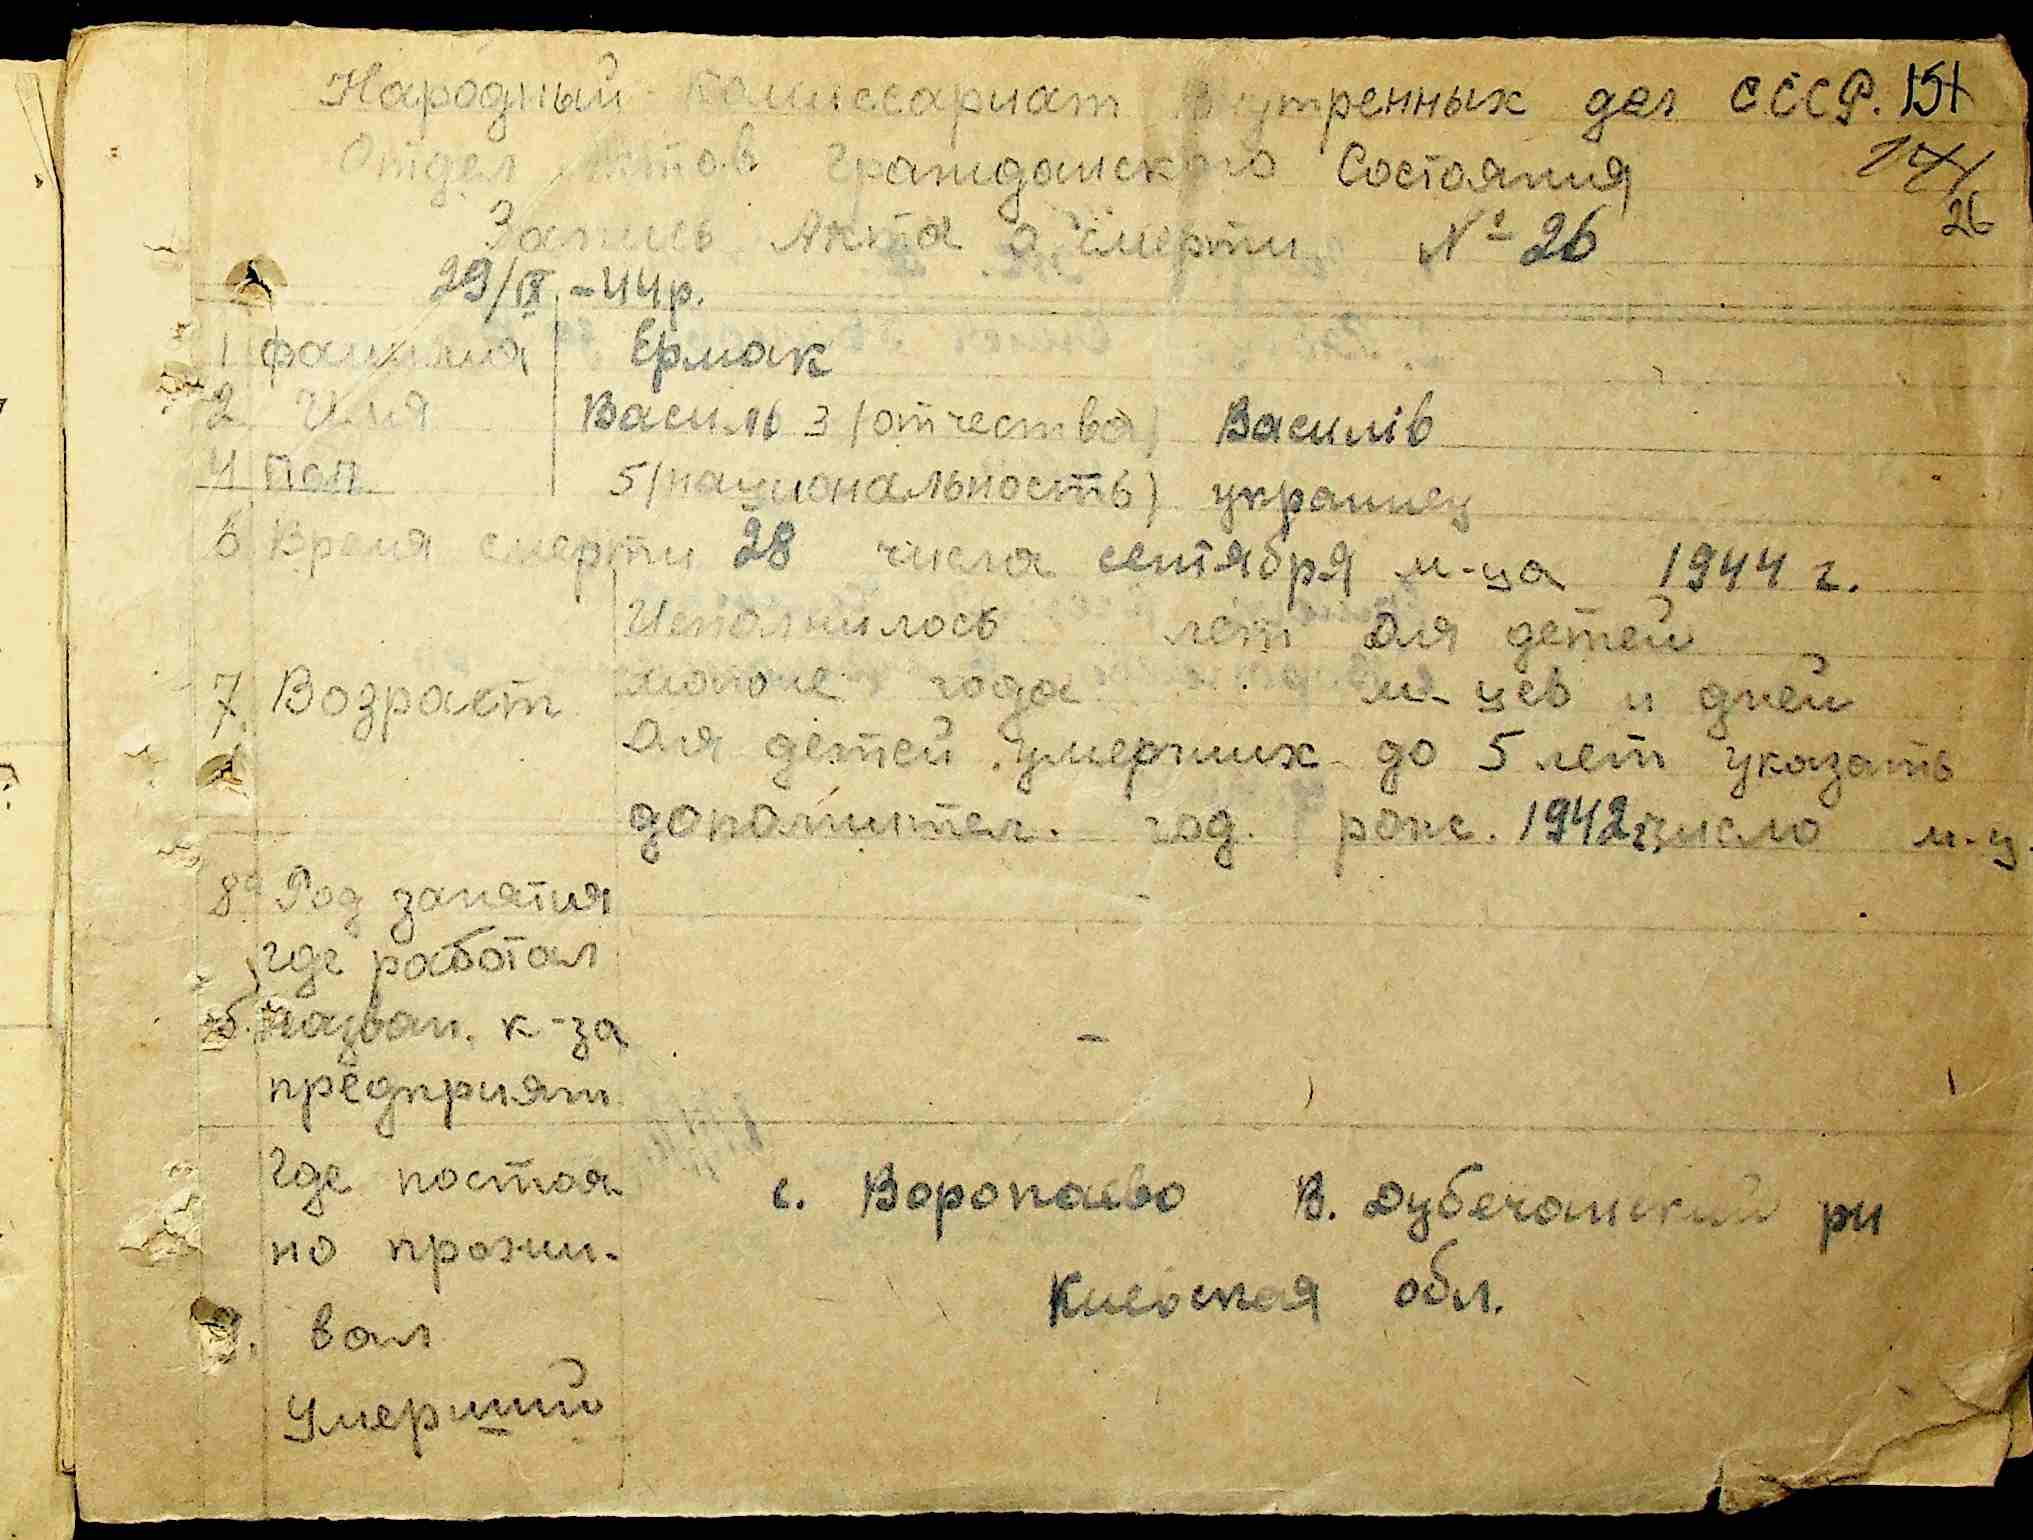 Народный Комиссариат Внутренных дел СССР. 151
Отдел Актов Гражданского Состояния
26
Запись Акта о смерти № 26
29/IX -44р.
1 фамилия Ермак
2 Имя Василь 3 (отчества) Василів
4 пол 5 (национальность) украинец
6 Время смерти 28 числа сентября м-ца 1944 г.
Исполнилось лет Для детей
7. Возраст моложе года м-цев и дней
Для детей умерших до 5 лет указать
дополнител. год. рожд. 1942 число м-ц.
8а Род занятия
где работал
б. назван. к-за –
предприят.
Где постоя
с. Воропаево В. Дубечанский рн
но прожи-
Киевская обл.
9. вал
умерший